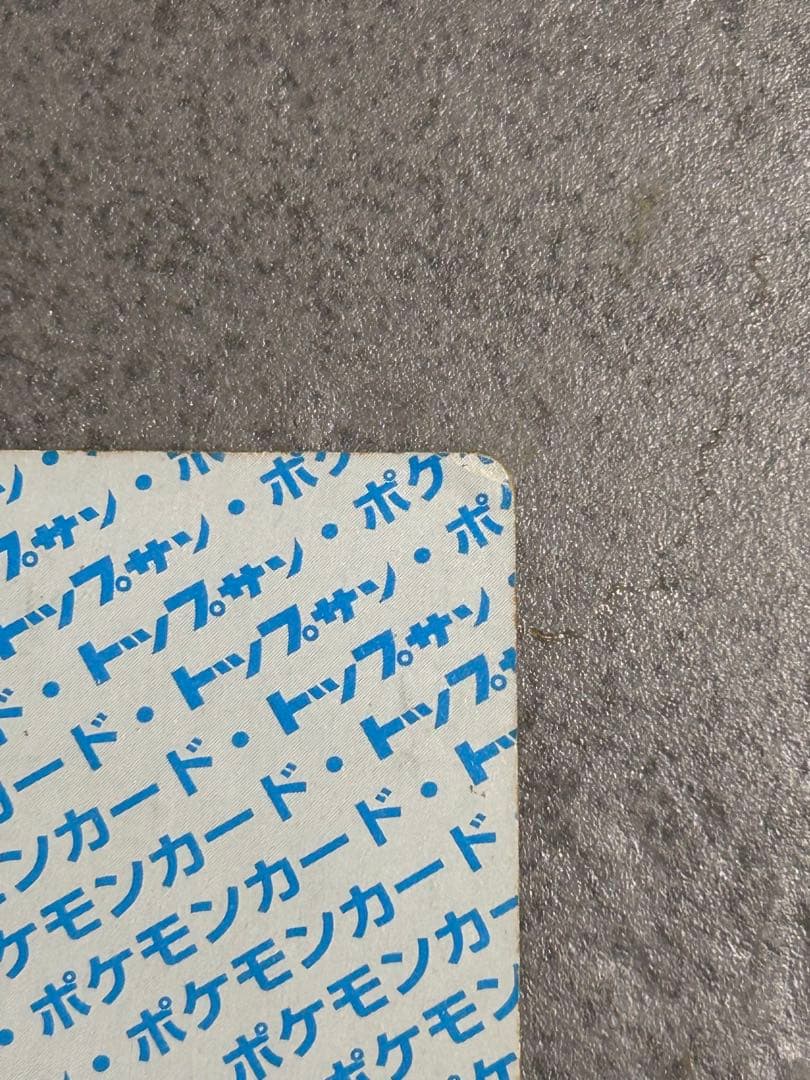 ン・
プサン・ポ
トップサン・ポケ
ド・トップサン・ポケ
カード・トップサン・ポ
ンカード・トップサン・
ケモンカード・トップ
・ポケモンカード・ト
・ポケモンカード
ポケモンカー
ポケモン